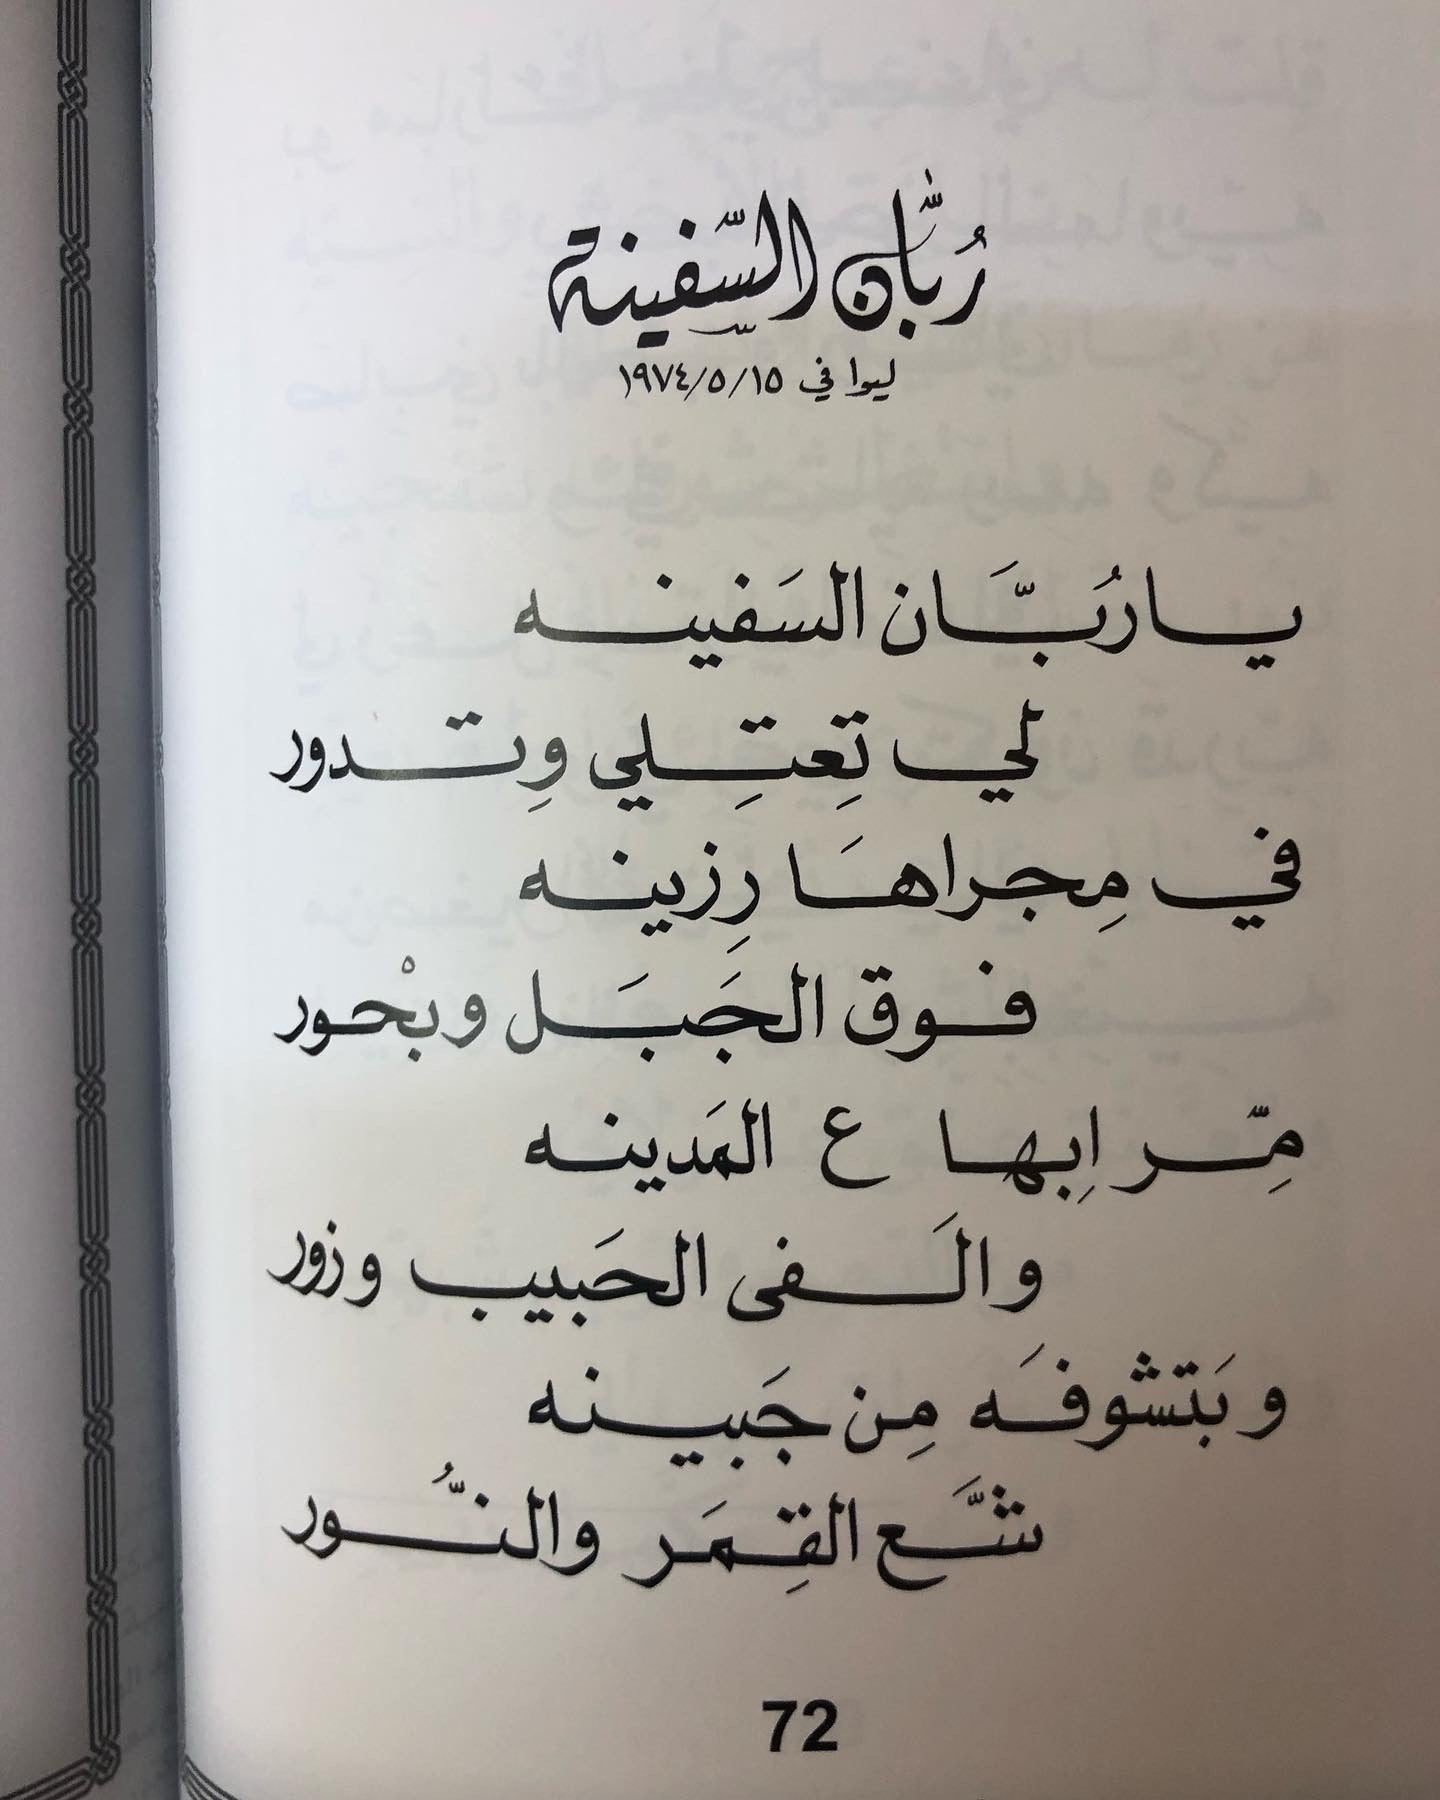 رُبَّان السّفينة
ليوا في ١٩٧٤/٥/١٥
يا رُبَّان السَفينه
لي تِعتِلي وِتدور
في مِجراهَا رِزينه
فوق الجَبَل وبْحور
مِّر اِبها ع المَدينه
والَفى الحَبيب وزور
وبَتشوفَه مِن جَبينه
شَّع القِمَر والنُّور
72